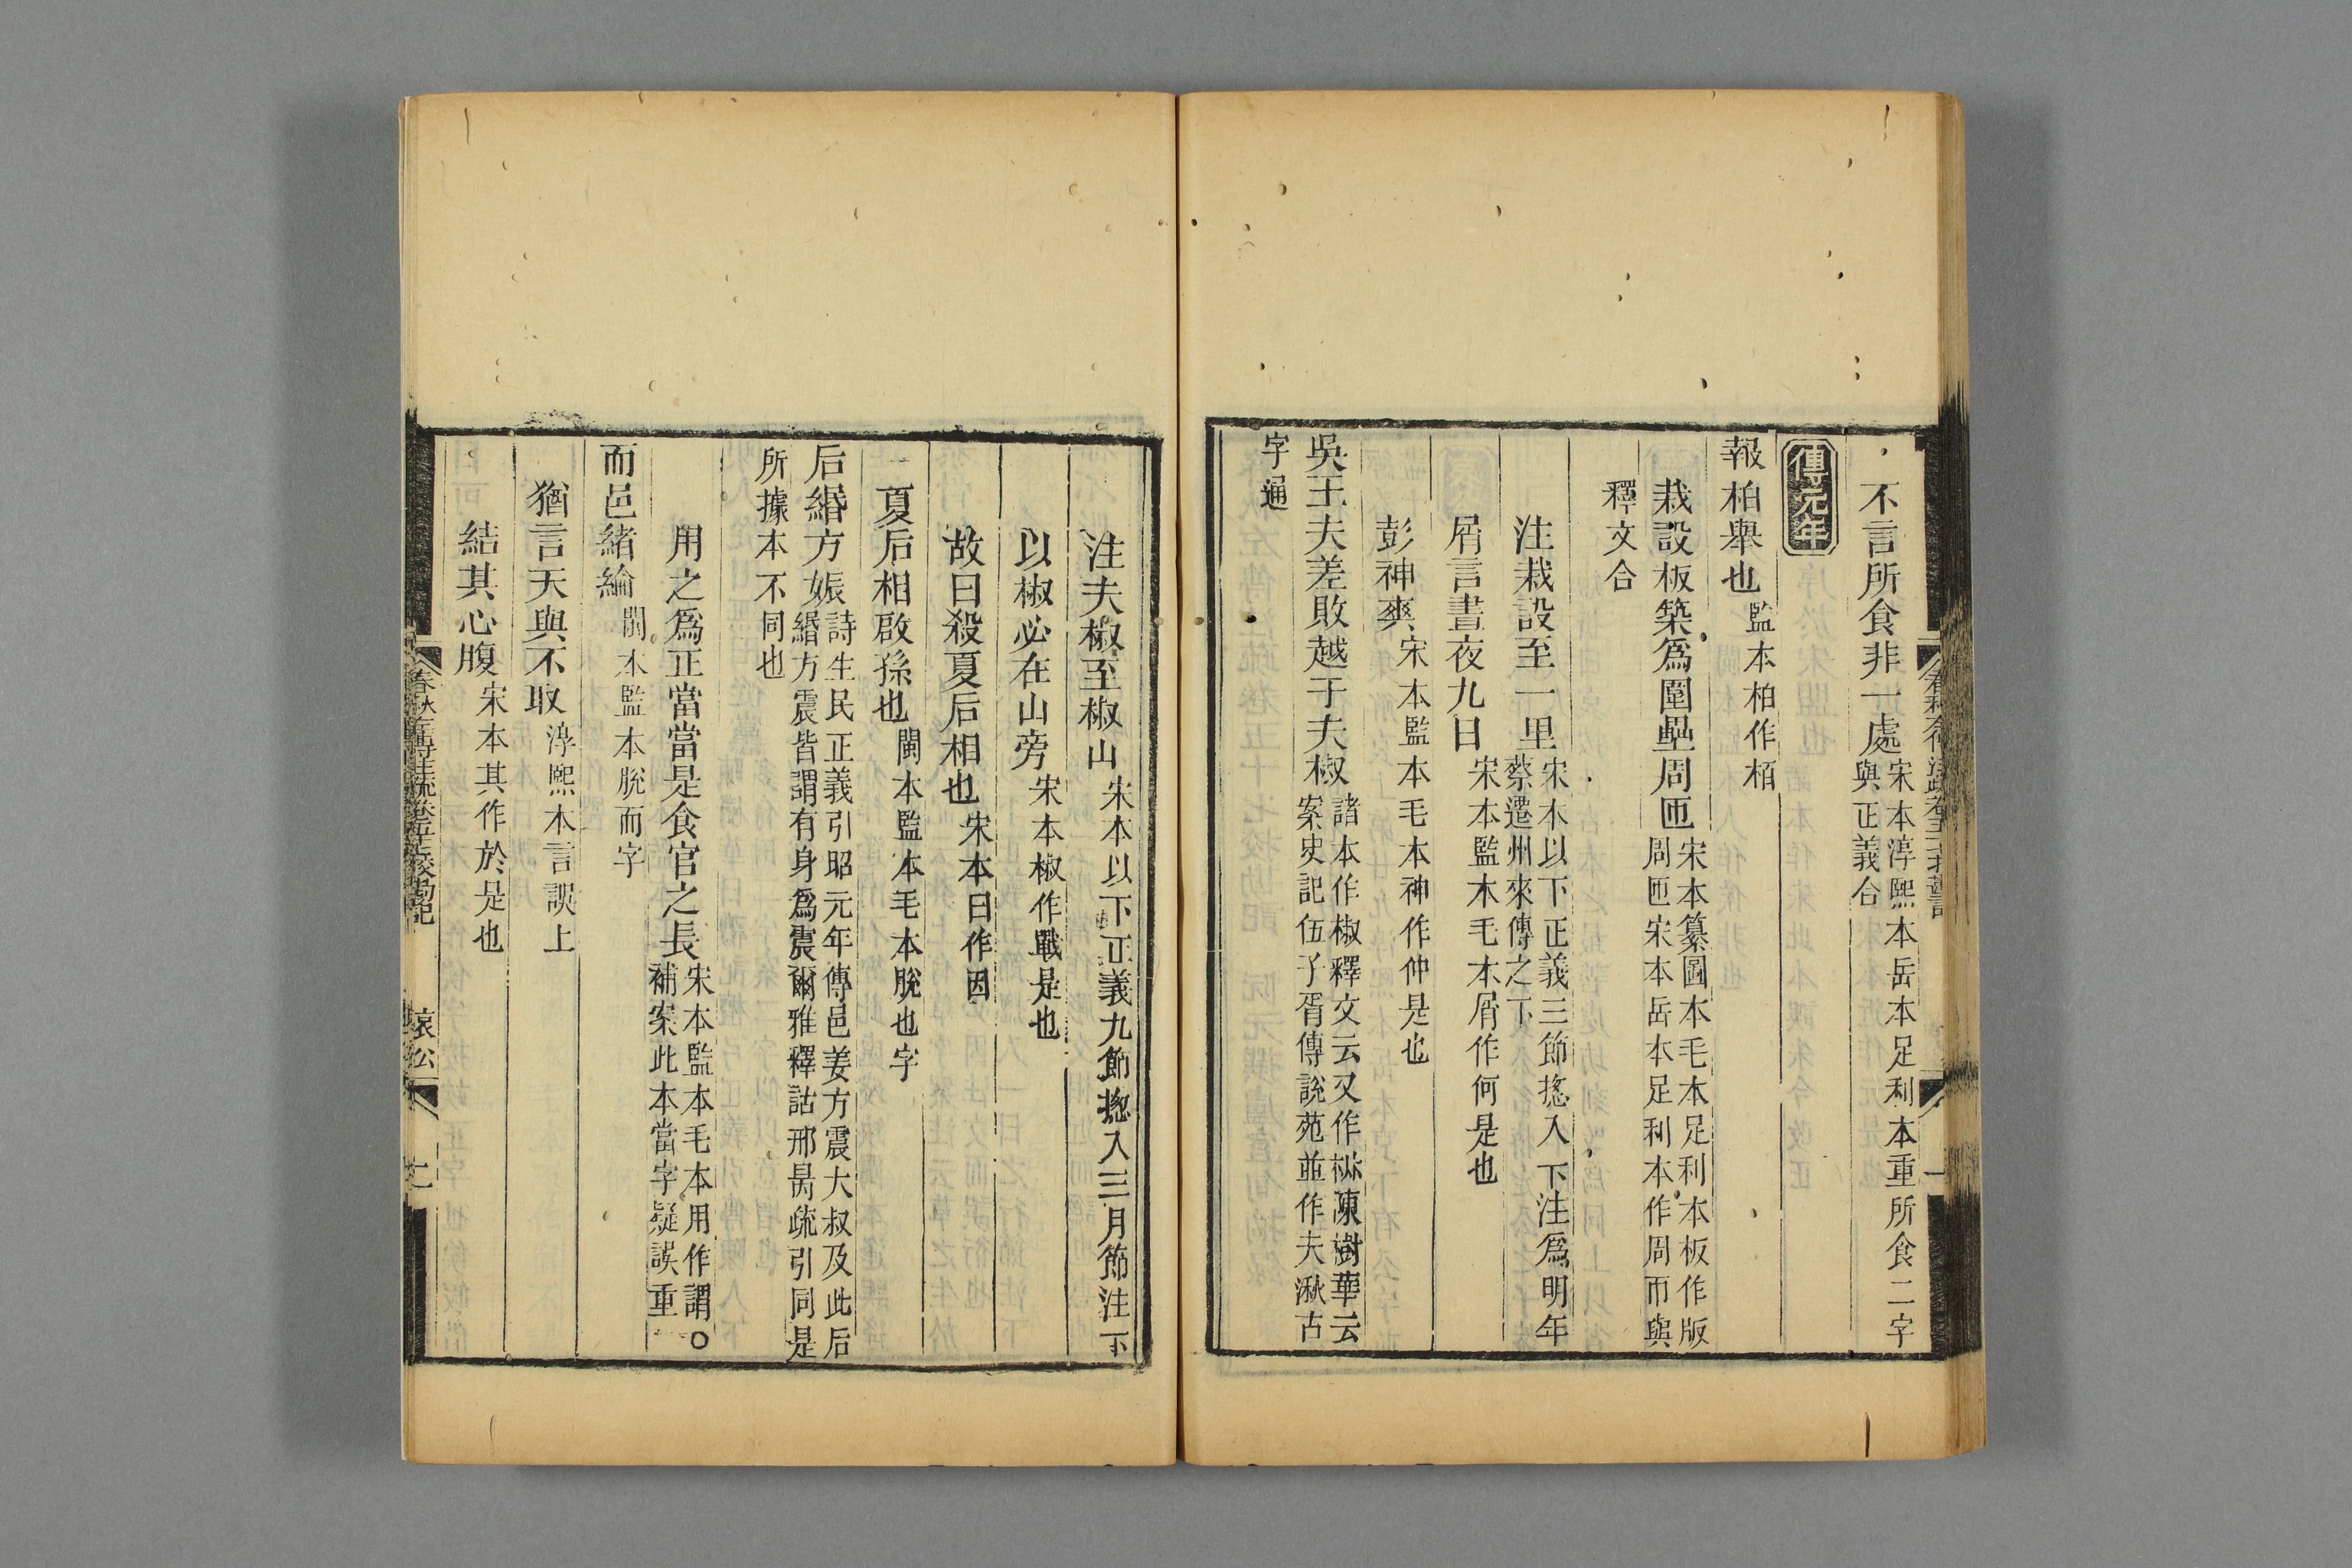 不言所食非一處宋本淳熙本岳本足利本重所食二字
與正義合
傳元年
報柏舉也監本柏作栢
栽設板築爲圍壘周匝宋本纂圖本毛本足利本板作版
周匝宋本岳本足利本作周而與
釋文合
注栽設至一里宋本以下正義三節揔入下注爲明年
蔡遷州來傳之下
屑言晝夜九日宋本監本毛本屑作何是也
彭神爽宋本監本毛本神作仲是也
吳王夫差敗越于夫椒諸本作椒釋文云又作𣕈陳樹華云
案史記伍子胥傳說苑並作夫湫古
字通
注夫椒至椒山宋本以下正義九節揔入三月節注下
以椒必在山旁宋本椒作戰是也
故曰殺夏后相也宋本曰作因
夏后相啟孫也閩本監本毛本脫也字
后緡方娠詩生民正義引昭元年傳邑姜方震大叔及此后
緡方震皆謂有身爲震爾雅釋詁邢昺疏引同是
所據本不同也
用之爲正當當是食官之長宋本監本毛本用作謂○
補案此本當字疑誤重
而邑緒綸閩本監本脫而字
猶言天與不取淳熙本言誤上
結其心腹宋本其作於是也
春秋左傳注疏卷五十七校勘記 哀公 二